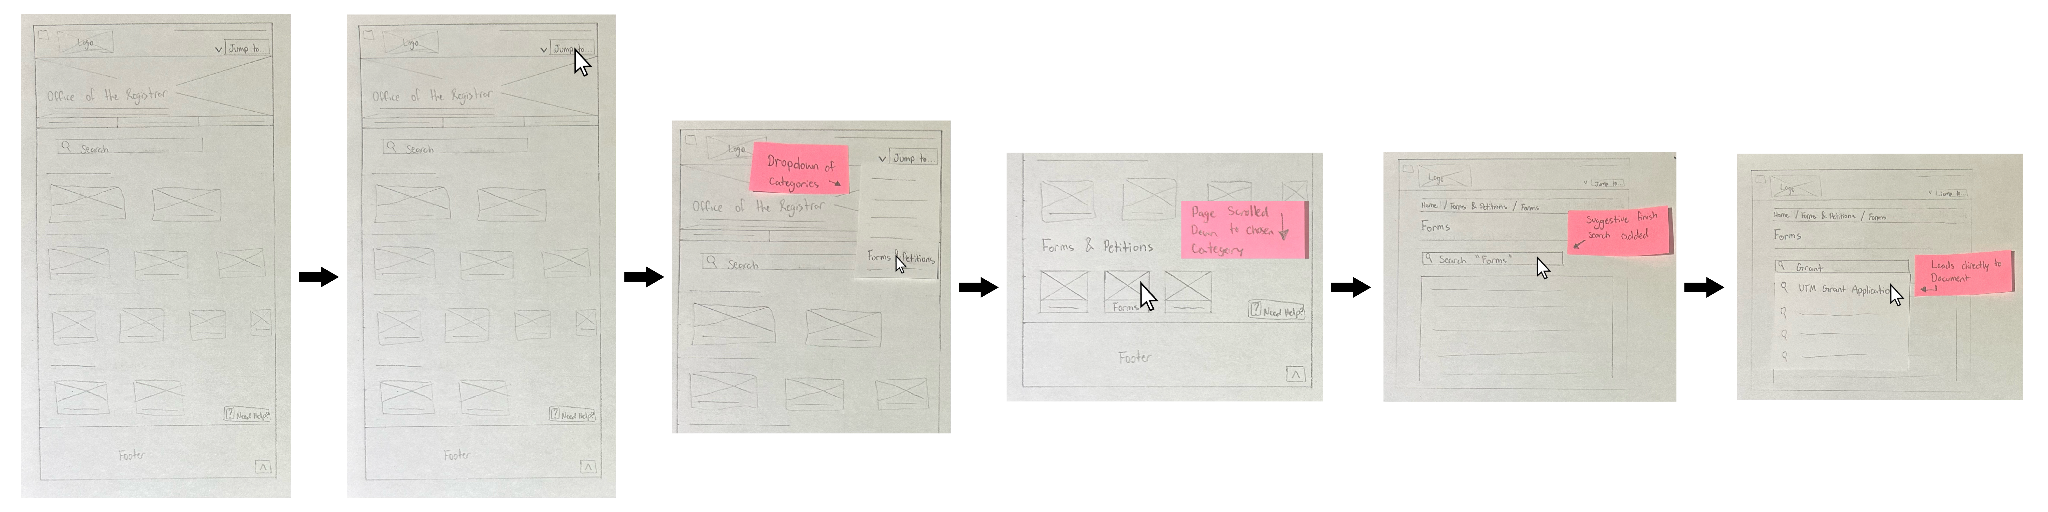 Logo
Jump to...
Office of the Registrar
Search
Need Help?
Footer
Logo
Jump to...
Office of the Registrar
Search
Need Help?
Footer
Logo
Dropdown of
Categories
Jump to...
Office of the Registrar
Search
Forms & Petitions
Page Scrolled
Down to chosen
Category
Forms & Petitions
Forms
Need Help?
Footer
Logo
Jump to...
Home / Forms & Petitions / Forms
Forms
Suggestive finish
search added
Search "Forms"
Logo
Jump to...
Home / Forms & Petitions / Forms
Forms
Grant
UTM Grant Application
Leads directly to
Document